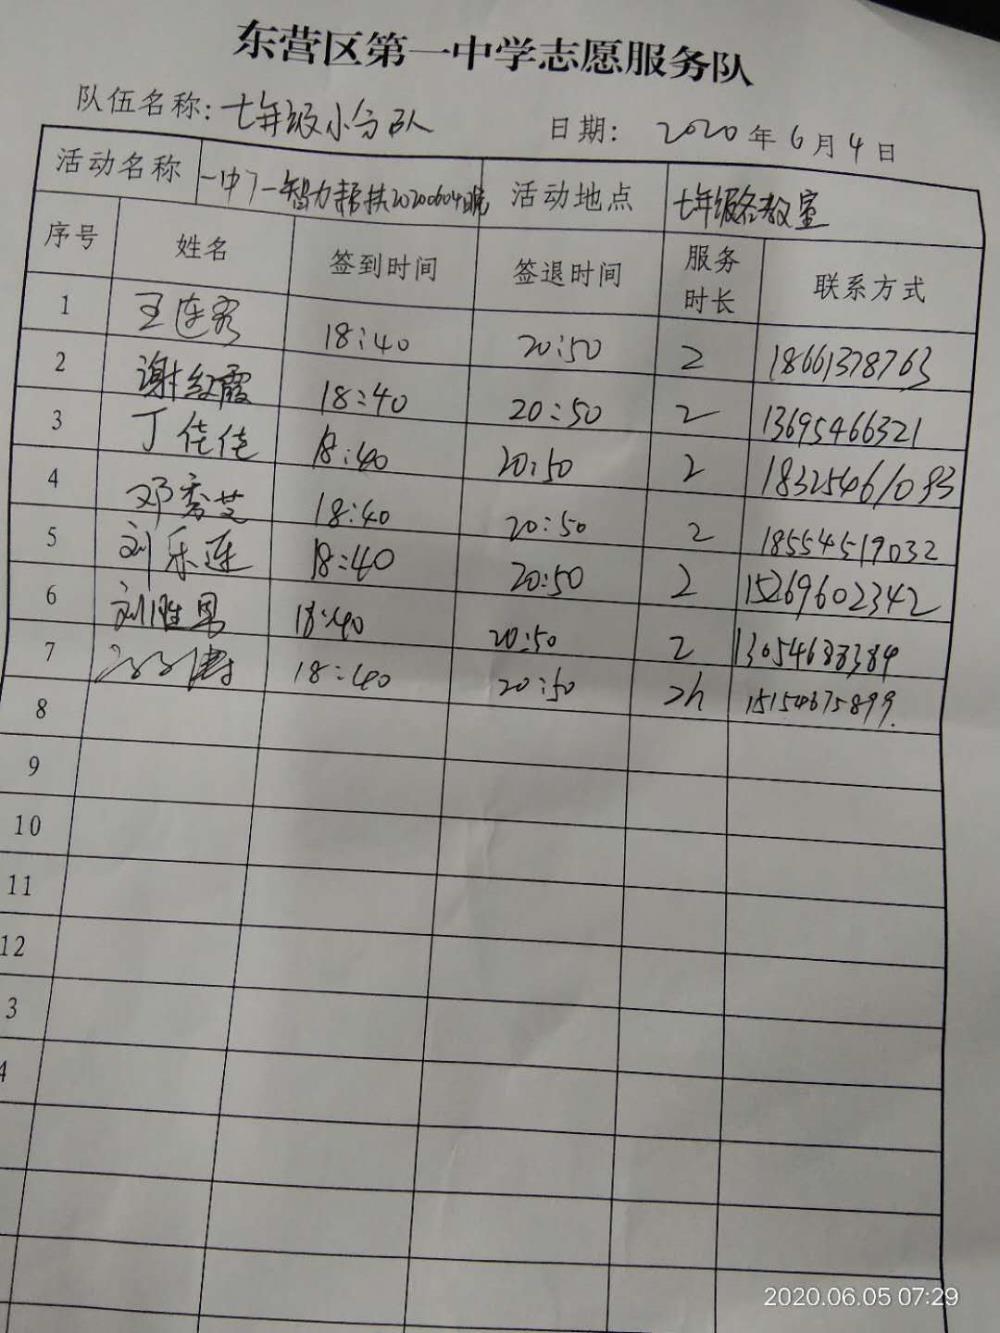 东营区第一中学志愿服务队
队伍名称: 七年级小分队 日期: 2020年6月4日
活动名称 一中7一智力帮扶20200604晚 活动地点 七年级各教室
序号 姓名 签到时间 签退时间 服务时长 联系方式
1 王连秀 18:40 20:50 2 18661378763
2 谢红霞 18:40 20:50 2 13695466321
3 丁佳佳 18:40 20:50 2 18325461093
4 邓秀芝 18:40 20:50 2 18554519032
5 刘乐莲 18:40 20:50 2 15269602342
6 刘胜男 18:40 20:50 2 13054683384
7 18:40 20:50 2h 15154675899.
8
9
10
11
12
3
4
2020.06.05 07:29